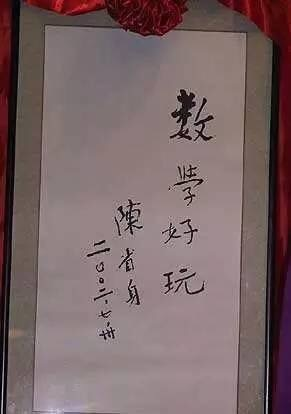 数學好玩
陳省身
二〇〇二、七、卅